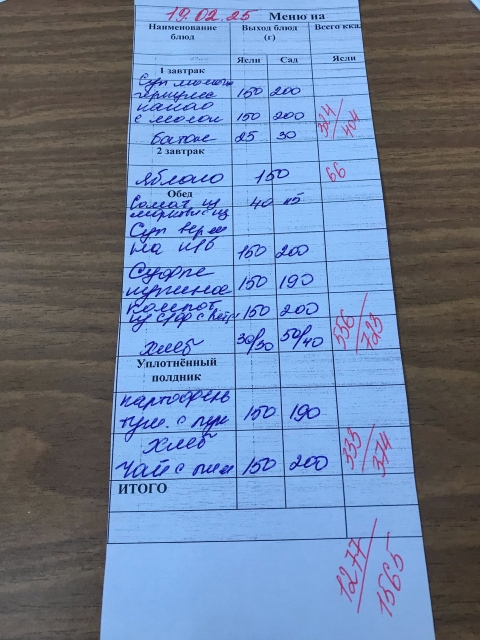 19.02.25 Меню на
Наименование блюд Выход блюд (г) Всего ккал
Ясли Сад Ясли
1 завтрак
Суп молочн
геркулес 150 200
какао
с молок 150 200 324/404
батон 25 30
2 завтрак
Яблоко 150 66
Обед
Салат из 40
Суп верм
на к/б 150 200
Суфле
150 190
компот
150 200
Хлеб 30/30 50/40 556/723
Уплотнённый
полдник
картофель
туш. с лук 150 190
Хлеб
Чай с 150 200 333/374
ИТОГО
1277/1565